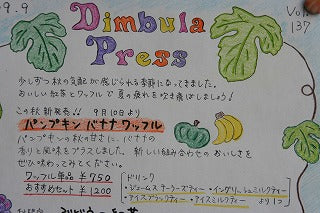 09.9
Vol.
137
Dimbula
Press
少しずつ秋の気配が感じられる季節になってきました。
おいしい紅茶とワッフルで夏の疲れを吹き飛ばしましょう!
この秋新発売!! 9月10日より
パンプキンバナナワッフル
パンプキンの秋の甘さに、バナナの
香りと風味をプラスしました。新しい組み合わせのおいしさを
ぜひ味わってみてください。
ワッフル単品 ¥750
おすすめセット ¥1200
ドリンク
・ジェームステーラーズティー ・イングリッシュミルクティー
・アイスブラックティー ・アイスミルクティー より1つ